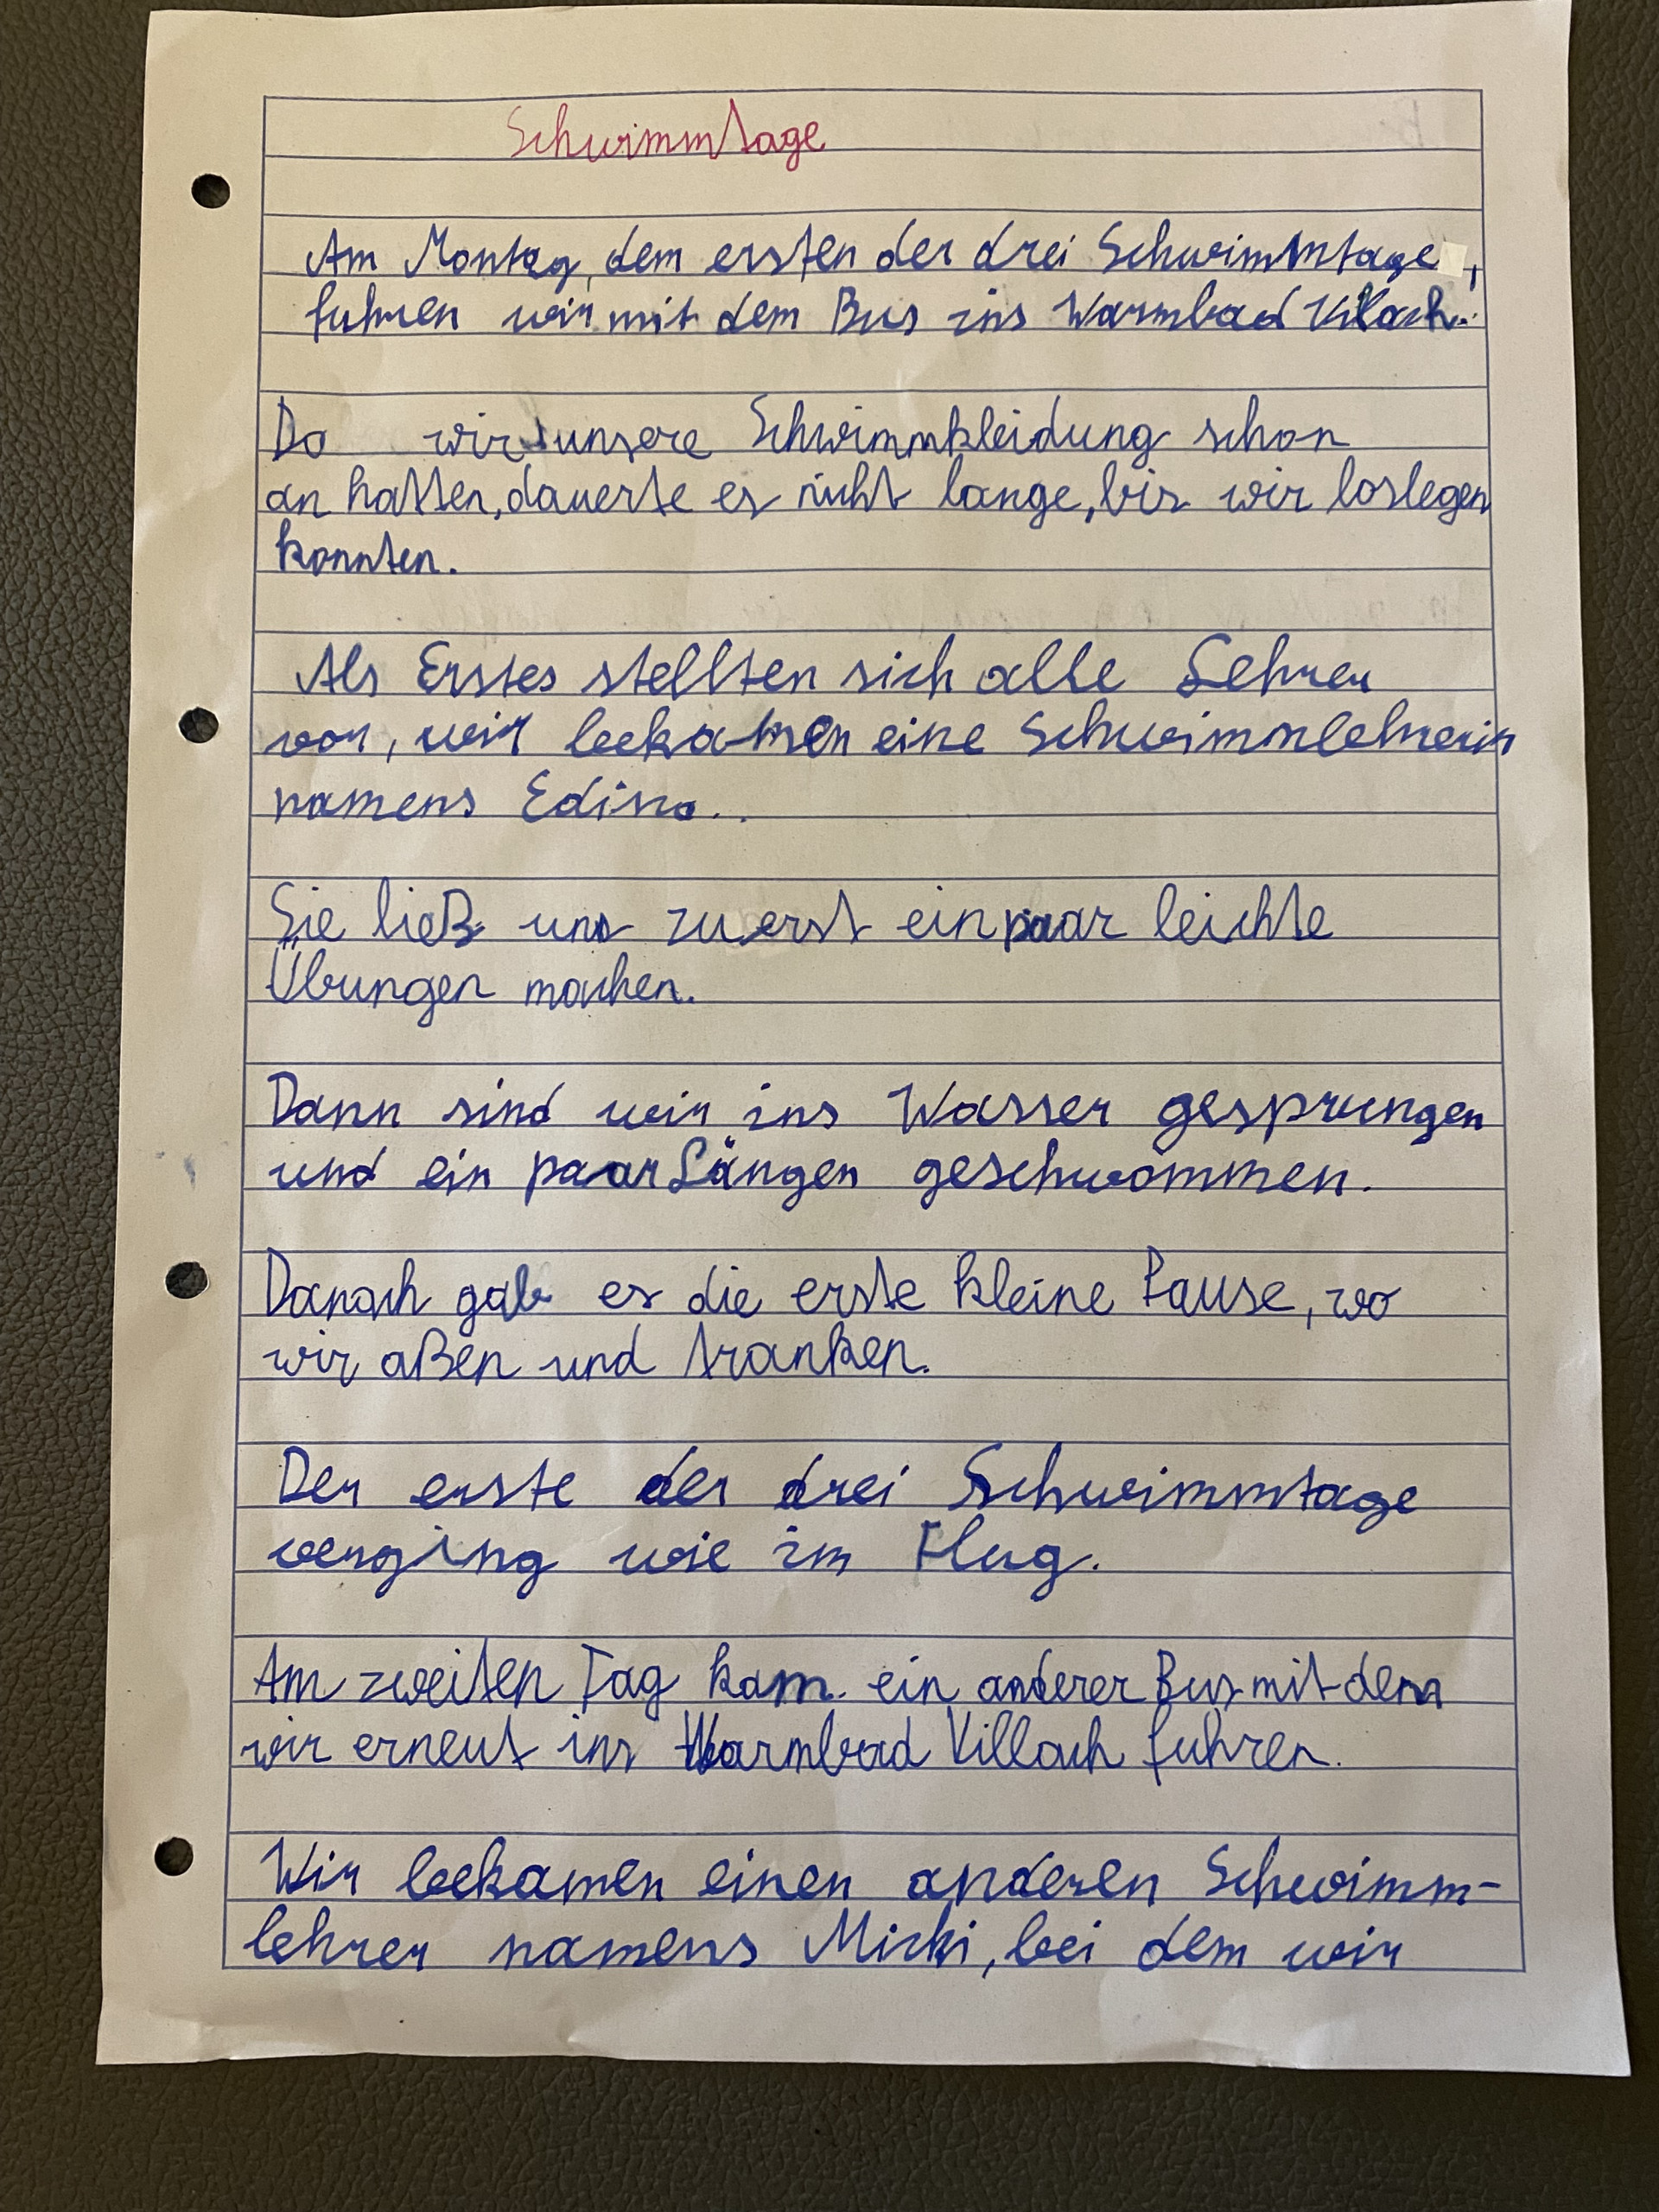 Schwimmtage
Am Montag, dem ersten der drei Schwimmtage,
fuhren wir mit dem Bus ins Warmbad Villach.
Da wir unsere Schwimmkleidung schon
an hatten, dauerte es nicht lange, bis wir loslegen
konnten.
Als Erstes stellten sich alle Lehrer
vor, wir bekamen eine Schwimmlehrerin
namens Edina.
Sie ließ uns zuerst ein paar leichte
Übungen machen.
Dann sind wir ins Wasser gesprungen
und ein paar Längen geschwommen.
Danach gab es die erste kleine Pause, wo
wir aßen und tranken.
Der erste der drei Schwimmtage
verging wie im Flug.
Am zweiten Tag kam ein anderer Bus mit dem
wir erneut ins Warmbad Villach fuhren.
Wir bekamen einen anderen Schwimm-
lehrer namens Michi, bei dem wir